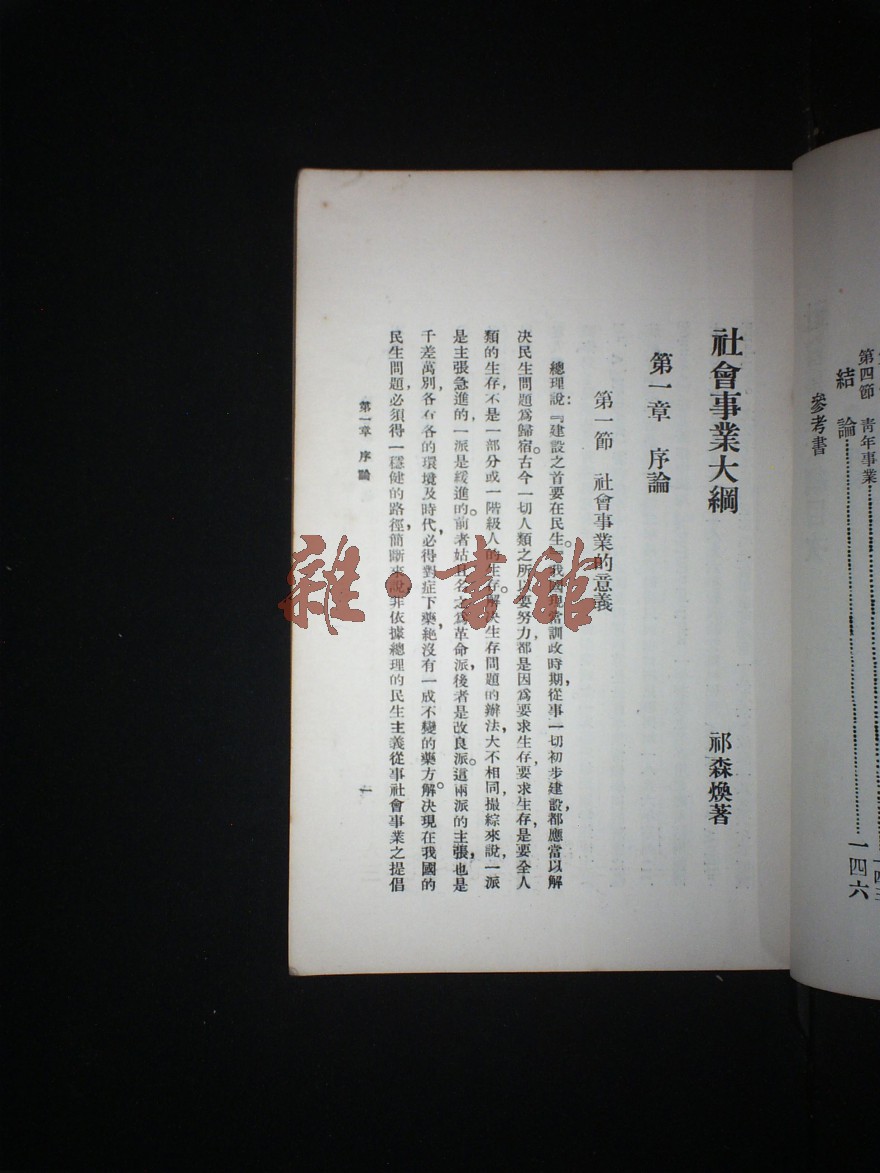 第四節 青年事業
結論 一四六
參考書
社會事業大綱
祁森煥著
第一章 序論
第一節 社會事業的意義
總理說：『建設之首要在民生。』我國現當訓政時期，從事一切初步建設，都應當以解
決民生問題爲歸宿。古今一切人類之所以要努力，都是因爲要求生存，要求生存，是要全人
類的生存，不是一部分或一階級人的生存。解決生存問題的辦法大不相同，撮綜來說，一派
是主張急進的，一派是緩進的。前者姑且名之爲革命派，後者是改良派。這兩派的主張，也是
千差萬別，各有各的環境及時代，必得對症下藥，絶沒有一成不變的藥方。解決現在我國的
民生問題，必須得一穩健的路徑，簡斷來說，非依據總理的民生主義從事社會事業之提倡
第一章 序論
一
雜·書館